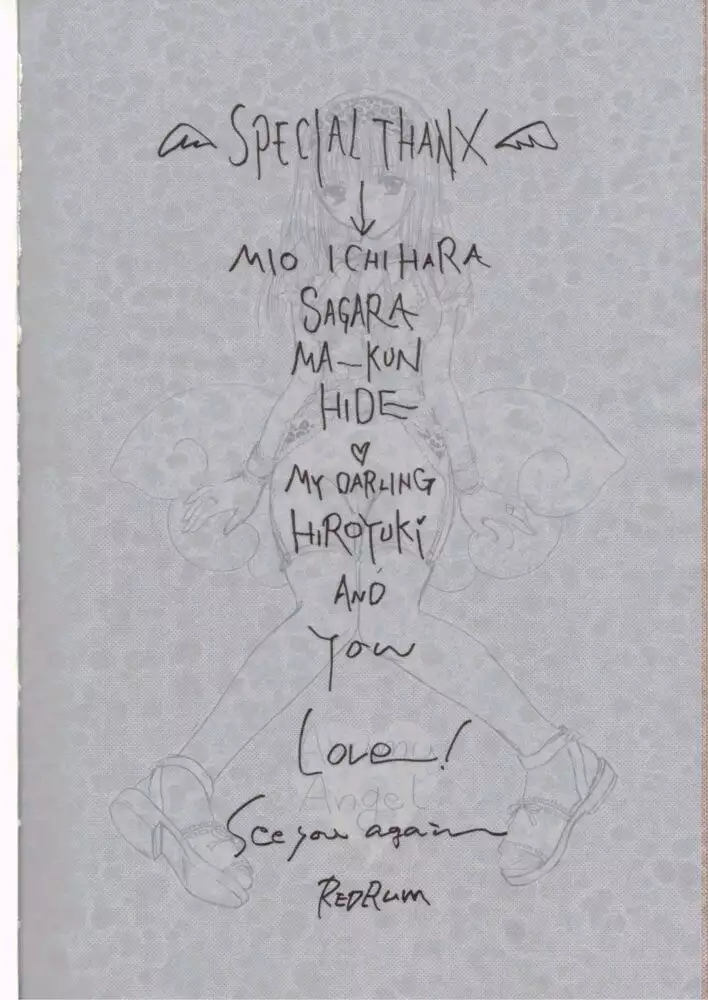 SPECIAL THANX
MIO ICHIHARA
SAGARA
MA-KUN
HIDE
♡
MY DARLING
HIROYUKI
AND
You
Love!
Angel
See you again
REDRUM